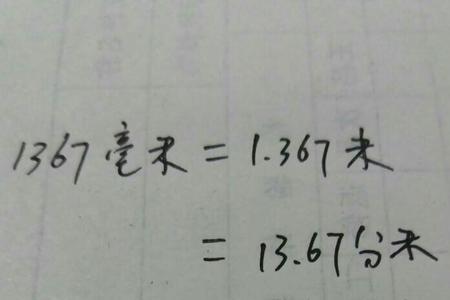 1367毫米 = 1.367米
= 13.67分米